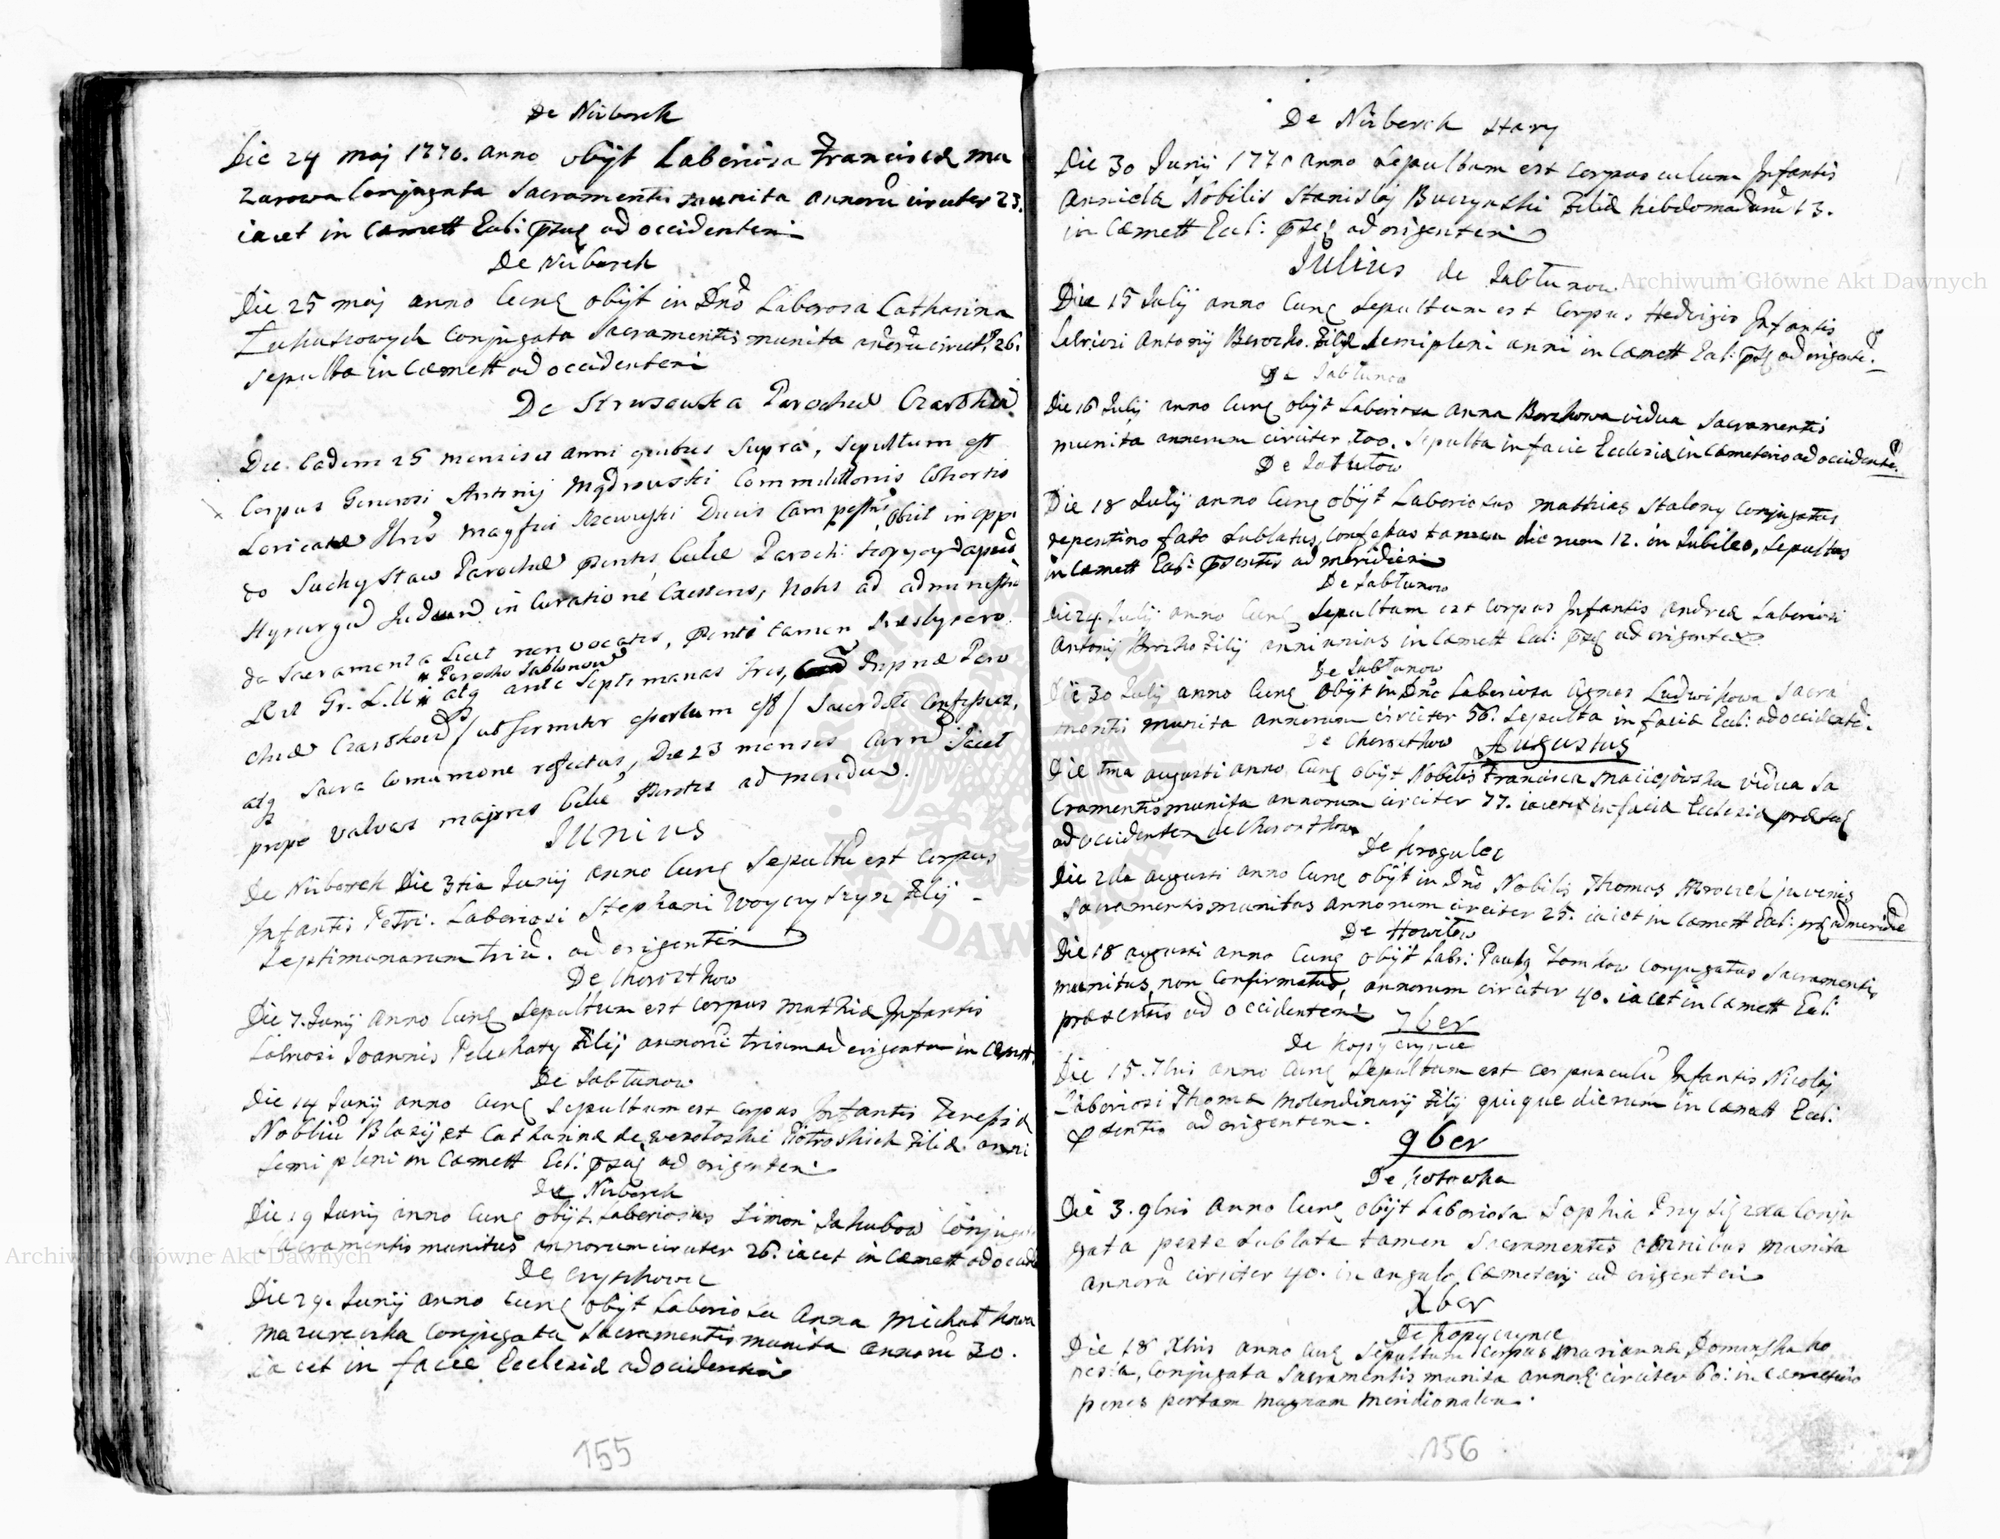 De Niżborek
Die 24 maj 1770. anno obijt Laboriosa Francisca Ma
zurowa Conjugata Sacramentis munita annorũ circiter 23.
iacet in Cæmett Ecl: ad occidentem
De Niżborek
Die 25 maj anno Curr obijt in Dño Laborosa Catharina
Conjugata Sacramentis munita circit 26.
sepulta in Cæmett ad occidentem
De Strusowka Parochiæ
Die Eadem 25 mensis anni quibus Supra, Sepultum est
Corpus Generosi Antonij Commilitonis Cohortis
Loricatæ Magfici Rzewuski Ducis Campestris, Obiit in oppi
do Suchystaw Parochiæ Parochi apud
in Curatione Nobis ad administran
da Sacramenta licet non vocatis, tamen Presbytero
Parocho Jablonow
Rit. Gr. L. ante Septimanas tres, Paro
chiæ ut fermiter est / Sacerdoti Confessus,
atq Sacra Comunione refectus, Die 23 mensis Jacet
prope valvas majores ad meridiem.
Junius
De Niżborek Die 3tia Junij anno Curr Sepultũ est Corpus
Infantis Petri. Laboriosi Stephani Woyciyszyn Filij
Septimanarum triũ. ad origentem
De Chorostkow
Die 7. Junij anno Curr Sepultum est Corpus Mathiæ Infantis
Labriosi Joannis Peleshaty Filij annorũ trium ad origentem in Cæmet.
De Jabłunow
Die 14 Junij anno Curr Sepultum est Corpus Infantis Teressiæ
Nobliũ Blasij et Catharinæ de Piotroskich Filiæ anni
Semi pleni in Cæmett Ecl: ad origentem
De Niżborek
Die 19 Junij anno Curr obijt Laboriosus Simon Jakubow Conjugat
Sacramentis munitus annorum circiter 26. iacet in Cæmett ad occide
De
Die 29. Junij anno Curr obijt Laboriosa Anna Michałkowa
Mazureczka Conjugata Sacramentis munita annorũ 30.
iacet in facie Ecclesiæ ad occidentem
155
De Niżberek stary
Die 30 Junij 1770 anno Sepultum est Corpusculum Infantis
Annielæ Nobilis Stanislaj Buczynski Filiæ hebdomadarũ 13.
in Cæmett Eccl: ad origentem
Julius de Jabłunow
Die 15 Julij anno Curr Sepultum est Corpus Hedvigis Infantis
Labriosi Antonij Berezko. Filiæ Semipleni anni in Cæmett Ecl: ad origente.
De Jabłunow
Die 16 Julij anno Curr obijt Laboriosa Anna Berzkowa vidua Sacramentis
munita annorum circiter 100. Sepulta in facie Ecclesiæ in Cæmeterio ad occidente.
De Jabłułow
Die 18 Julij anno Curr obijt Laboriosus Mathias Stalony Conjugatus
repentino fato Sublatus, Confessus tamen dierum 12. in Jubileo, Sepultus
in Cæmett Ecl: ad meridiem
De Jabłunow
Die 24. Julij anno Curr Sepultum est Corpus Infantis Andreæ Laboriosi
Antonij Filij anni unius in Cæmett Ecl: ad origente
De Jabłunow
Die 30 Julij anno Curr obijt in Dño Laboriosa Agnes Ludwikowa Sacra
mentis munita annorum circiter 56. Sepulta in facie Ecl: ad occidente.
De Chorostkow Augustus
Die 1ma augusti anno Curr obijt Nobilis Francisca Maciejowska vidua Sa
cramentis munita annorum circiter 77. iacet in facie Ecclesiæ
ad occidentem de Chorostkow
De Krogulec
Die 2da augusti anno Curr obijt in Dño Nobilis Thomas Mroczek juvenis
Sacramentis munitus annorum circiter 25. iacet in Cæmett Ecl: ad meridie
De Howiłow
Die 18 augusti anno Curr obijt Labr: Paulq Tomkow Conjugatus Sacramentis
munitus, non Confirmatus, annorum circiter 40. iacet in Cæmett Ecli
præsentis ad occidentem
7ber
De Kopyczynce
Die 15. 7bris anno Curr Sepultum est Corpusculũ Infantis Nicolaj
Laboriosi Thomæ Molendinarij Filij quique dierum in Cæmett Eccl:
ad origentem.
9ber
De Kotowka
Die 3. 9bris anno Curr obijt Laboriosa Sophia Conju
gata peste Sublata tamen Sacramentis omnibus munita
annorũ circiter 40. in angulo Cæmeterij ad origentem
Xber
De Kopyczynce
Die 18 Xbris anno Curr Sepultum Corpus Mariannæ Domanska
Conjugata Sacramentis munita circiter 60: in Cæmeterio
penes portam magnam meridionalem.
156
Archiwum Główne Akt Dawnych
Archiwum Główne Akt Dawnych